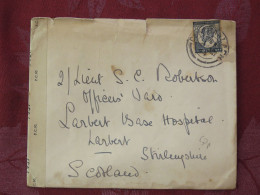 2/Lieut S. C. Robertson
Officers' Ward
Larbert Base Hospital
Larbert
Stirlingshire
Scotland